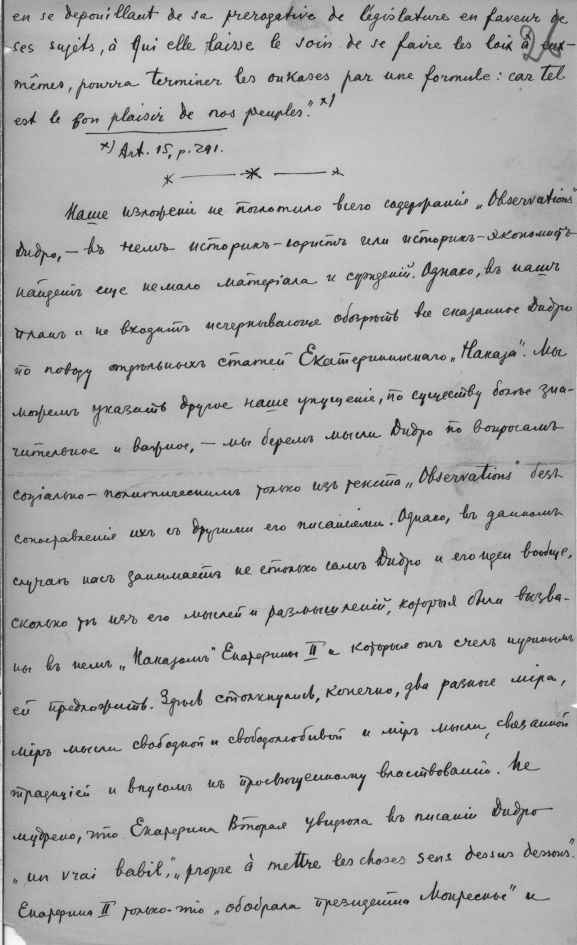 en se depouillant de sa prerogative de législature en faveur de
ses sujets, à qui elle laisse le soin de se faire les loix à eux-
mêmes, pourra terminer les oukases par une formule: car tel
est le bon plaisir de nos peuples." х)
х) Art. 15, p. 291.
Наше изложеніе не поглотило всего содержанія „Observations"
Дидро, – въ немъ историкъ-юристъ или историкъ-экономистъ
найдетъ еще немало матеріала и сужденій. Однако, въ нашъ
планъ и не входитъ исчерпывающе обозрѣть все сказанное Дидро
по поводу отдѣльныхъ статей Екатерининскаго „Наказа". Мы
можемъ указать другое наше упущеніе, по существу болѣе зна-
чительное и важное, – мы беремъ мысли Дидро по вопросамъ
соціально-политическимъ только изъ текста „Observations" безъ
сопоставленія ихъ съ другими его писаніями. Однако, въ данномъ
случаѣ насъ занимаетъ не столько самъ Дидро и его идеи вообще,
сколько тѣ изъ его мыслей и размышленій, которыя были вызва-
ны въ немъ „Наказомъ" Екатерины II и которыя онъ счелъ нужнымъ
ей предложить. Здѣсь столкнулись, конечно, два разные міра,
міръ мысли свободной и свободолюбивой и міръ мысли, связанной
традиціей и вкусомъ къ просвѣщенному властвованію. Не
мудрено, что Екатерина Вторая увидѣла въ писаніи Дидро
„un vrai babil", „propre à mettre les choses sens dessus dessous".
Екатерина II только-что „обобрала президента Монтескье" и